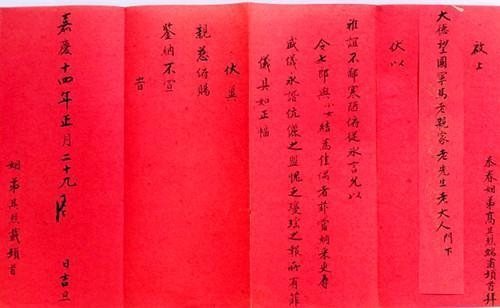 忝眷姻弟高照端肅頓首拜
啟上
大德望國宰馬老親家老先生老大人門下
伏以
雅誼不鄙寒陋俯從冰言允以
令七郎與小女結為佳偶者菲當納采更辱
儀永諧伉儷之盟愧乏瓊瑤之報所有菲
儀具如正幅
伏冀
親慈俯賜
鑒納不宣
旹
嘉慶十四年正月二十九 日吉旦
姻弟照載頓首